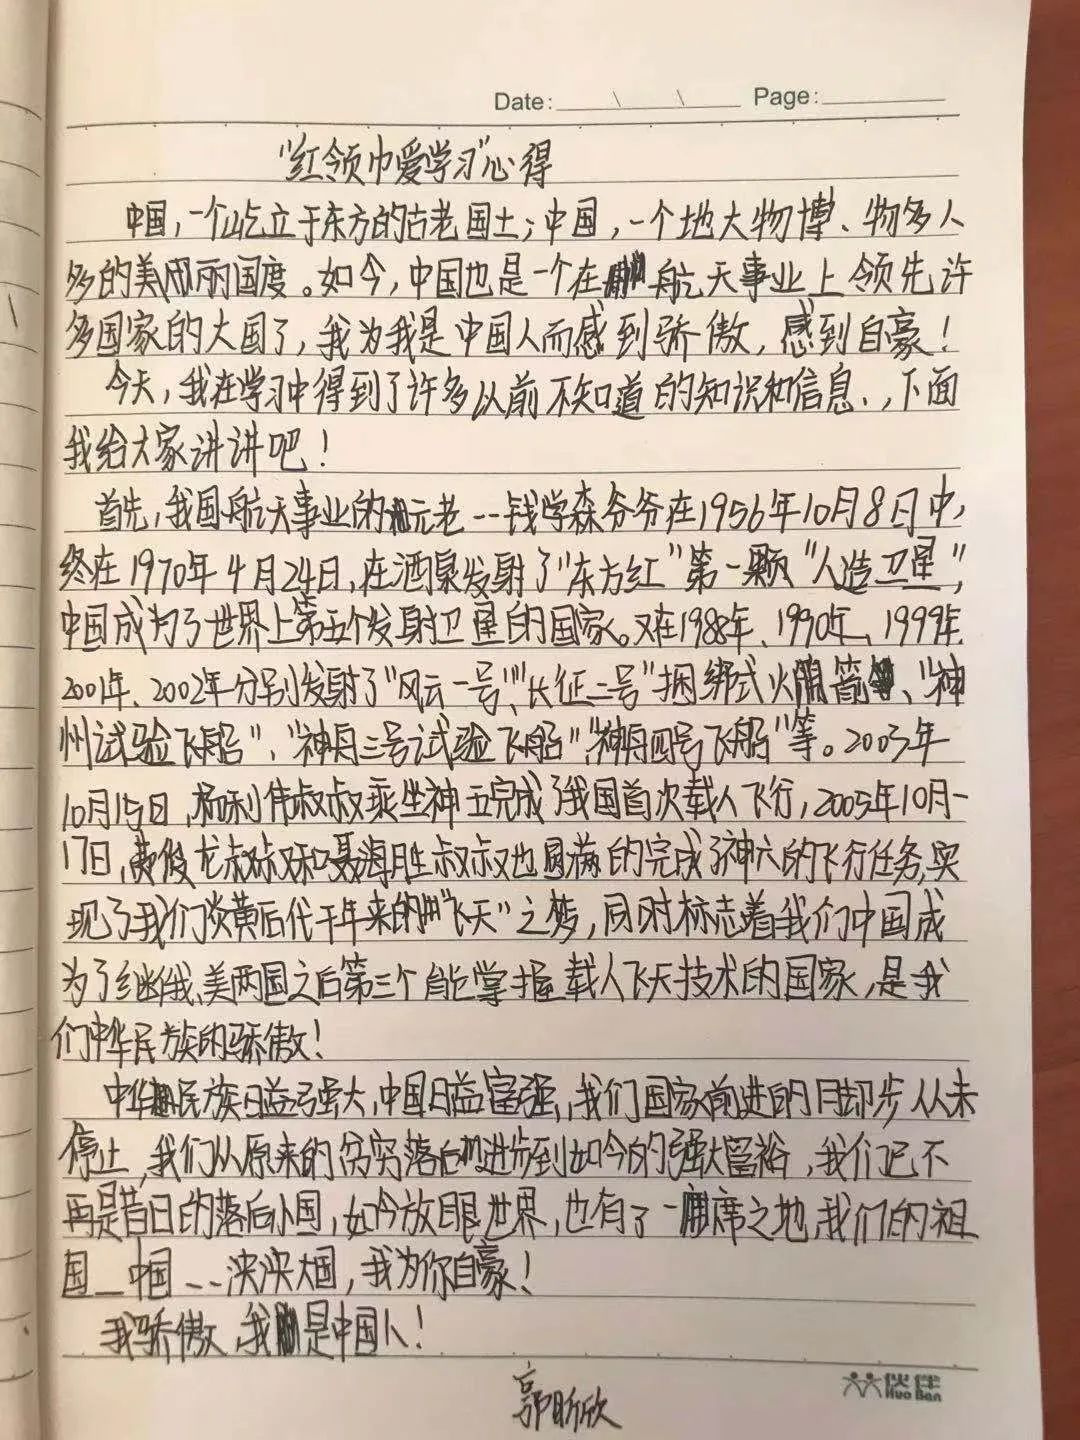 Date: \ \ Page:
“红领巾爱学习”心得
中国，一个屹立于东方的古老国土；中国，一个地大物博、物多人
多的美丽国度。如今，中国也是一个在航天事业上领先许
多国家的大国了，我为我是中国人而感到骄傲，感到自豪！
今天，我在学习中得到了许多以前不知道的知识和信息、，下面
我给大家讲讲吧！
首先，我国航天事业的元老--钱学森爷爷在1956年10月8日中，
终在1970年4月24日，在酒泉发射了“东方红”第一颗“人造卫星”，
中国成为了世界上第五个发射卫星的国家。又在1988年、1990年、1999年
2001年、2002年分别发射了“风云一号”“长征二号”捆绑式火箭、“神
州试验飞船”、“神舟三号试验飞船”“神舟四号飞船”等。2003年
10月15日，杨利伟叔叔乘坐神五完成了我国首次载人飞行，2005年10月-
17日，费俊龙叔叔和聂海胜叔叔也圆满的完成了神六的飞行任务，实
现了我们炎黄后代千年来的“飞天”之梦，同时标志着我们中国成
为了继俄、美两国之后第三个能掌握载人飞天技术的国家，是我
们中华民族的骄傲！
中华民族日益强大，中国日益富强，我们国家前进的脚步从未
停止，我们从原来的贫穷落后进步到如今的强大富裕，我们已不
再是昔日的落后小国，如今放眼世界，也有了一席之地，我们的祖
国__中国--泱泱大国，我为你自豪！
我骄傲，我是中国人！
郭昕欣
伙伴
Huo Ban